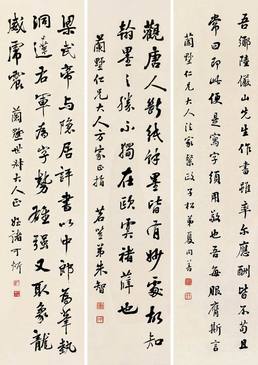 吾鄉陸儼山先生作書雖率尔應酬皆不苟且
常曰即此便是寫字須用敬也吾每服膺斯言
蘭墅仁兄大人法家 政子松弟夏同善
觀唐人斷紙餘墨皆有妙處故知
翰墨之勝不獨在歐虞褚薛也
蘭墅仁兄大人方家正指
茗笙弟朱智
梁武帝与隱居評書以中郎為筆勢
洞達右軍為字勢雄强又取象龍
威虎震 蘭墅世叔大人正 姪諸可炘